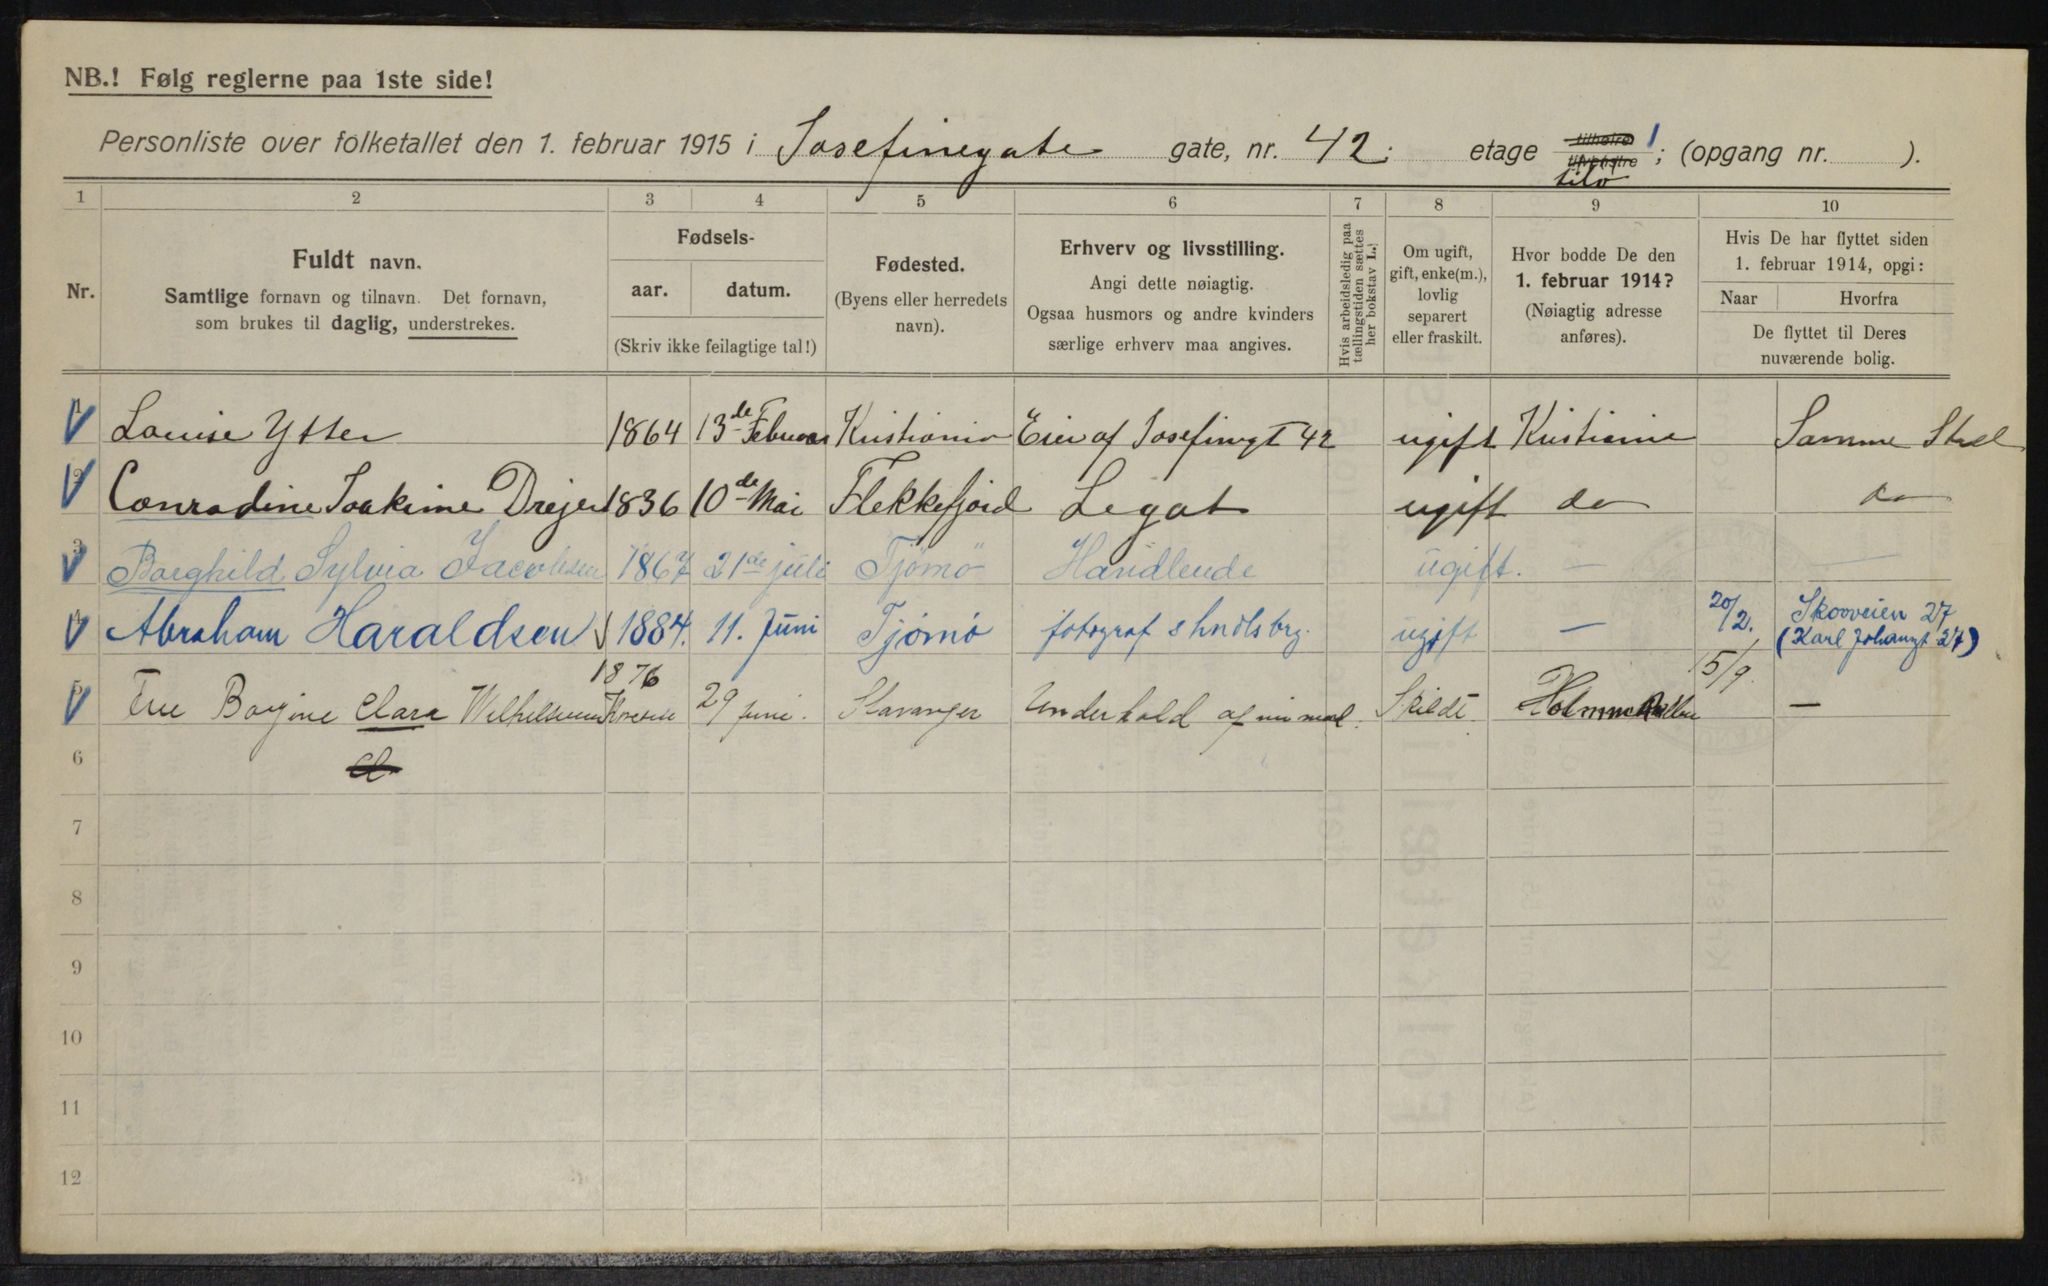 NB.! Følg reglerne paa 1ste side!
Personliste over folketallet den 1. februar 1915 i Josefinegate gate, nr. 42; etage tilhøire tilvenstre 1 ; (opgang nr. ).
1 2 3 4 5 6 7 8 9 10
Nr.
Fuldt navn.
Samtlige fornavn og tilnavn. Det fornavn,
som brukes til daglig, understrekes.
Fødsels-
aar. datum.
(Skriv ikke feilagtige tal!)
Fødested.
(Byens eller herredets
navn).
Erhverv og livsstilling.
Angi dette nøiagtig.
Ogsaa husmors og andre kvinders
særlige erhverv maa angives.
Hvis arbeidsledig paa
tællingstiden sættes
her bokstav L.!
Om ugift,
gift, enke(m.),
lovlig
separert
eller fraskilt.
Hvor bodde De den
1. februar 1914?
(Nøiagtig adresse
anføres).
Hvis De har flyttet siden
1. februar 1914, opgi:
Naar Hvorfra
De flyttet til Deres
nuværende bolig.
1 Louise Ytter 1864 13de Februar Kristiania Eier af Josefinegt 42 ugift Kristiania Samme Sted
2 Conradine Joakime Dreier 1836 10de Mai Flekkefjord Legat ugift do do
3 Borghild Sylvia Jacobsen 1867 21de juli Tjømø Handlende ugift. — —
4 Abraham Haraldsen 1884. 11. Juni Tjømø fotograf & hndlsbrg. ugift — 20/2. Skovveien 27
(Karl Johansgt 27)
1876 15/9.
5 Fru Borgine Clara 29 juni. Stavanger Underhold af min mand. Skildt. —
6
7
8
9
10
11
12